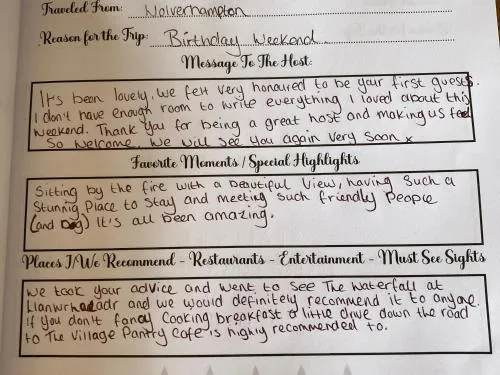 Traveled From: Wolverhampton
Reason for the Trip: Birthday Weekend.
Message To The Host:
It's been lovely. We felt very honoured to be your first guests.
I don't have enough room to write everything I loved about this
weekend. Thank you for being a great host and making us feel
So welcome. We will see you again very soon x
Favorite Moments / Special Highlights
Sitting by the fire with a beautiful view, having such a
Stunnig place to stay and meeting such friendly people
(and Dog) It's all been amazing.
Places I/We Recommend - Restaurants - Entertainment - Must See Sights
We took your advice and went to see The Waterfall at
Llanwrhaeadr and we would definitely recommend it to anyone.
If you don't fancy cooking breakfast a little drive down the road
to The Village Pantry Cafe is highly recommended to.